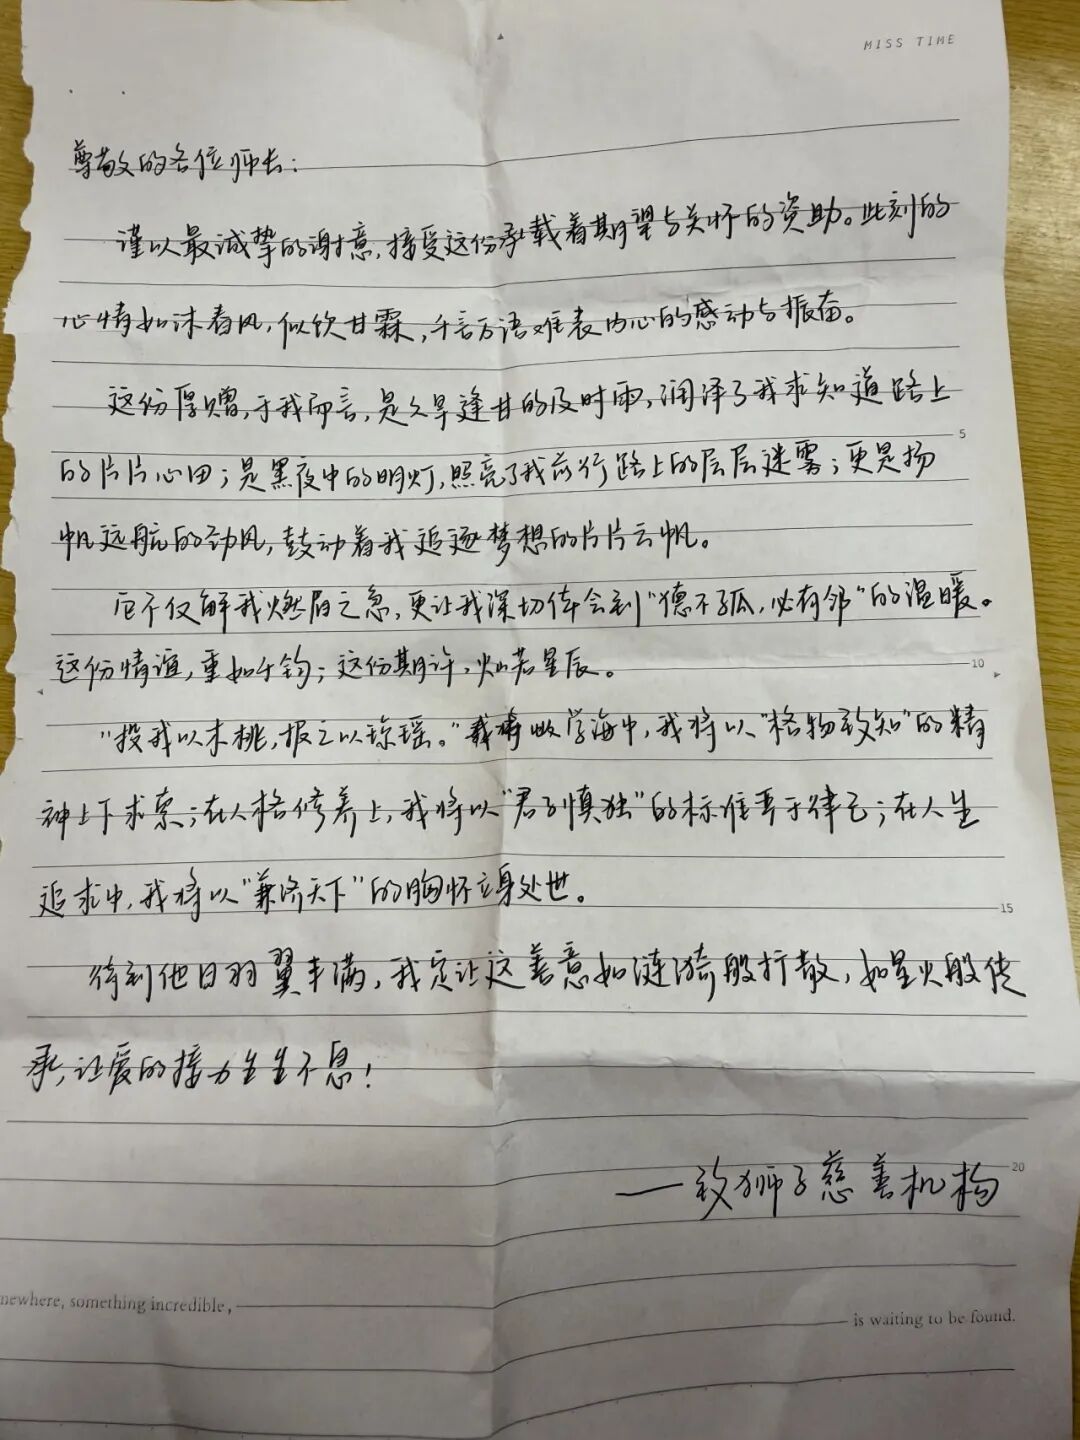 MISS TIME
尊敬的各位师长:
谨以最诚挚的谢意,接受这份承载着期望与关怀的资助。此刻的
心情如沐春风,似饮甘霖,千言万语难表内心的感动与振奋。
这份厚赠,于我而言,是久旱逢甘的及时雨,润泽了我求知道路上
5
的片片心田;是黑夜中的明灯,照亮了我前行路上的层层迷雾;更是扬
帆远航的劲风,鼓动着我追逐梦想的片片云帆。
它不仅解我燃眉之急,更让我深切体会到“德不孤,必有邻”的温暖。
这份情谊,重如千钧;这份期许,灿若星辰。
10
“投我以木桃,报之以琼瑶。”学海中,我将以“格物致知”的精
神上下求索;在人格修养上,我将以“君子慎独”的标准严于律己;在人生
追求中,我将以“兼济天下”的胸怀立身处世。
15
待到他日羽翼丰满,我定让这善意如涟漪般扩散,如星火般传
承,让爱的接力生生不息!
——致狮子慈善机构
20
newhere, something incredible,
is waiting to be found.